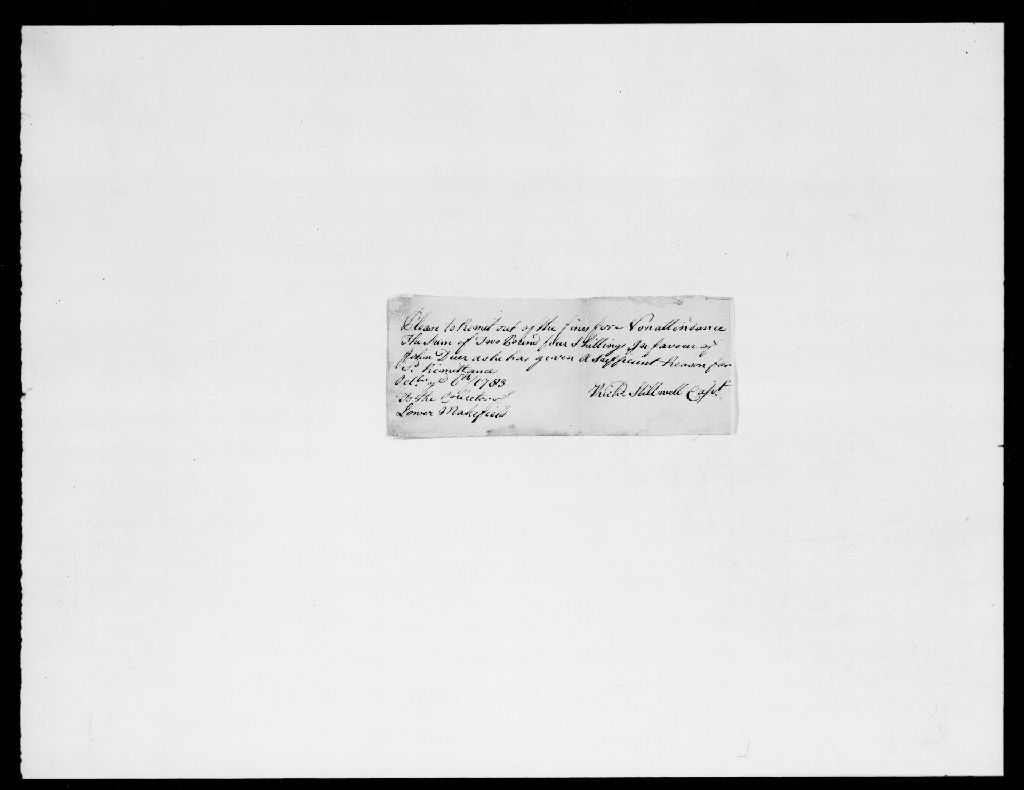 Please to Remit out of the fines for Nonattendance
The Sum of Two Pound four Shillings In favour of
John Duer as he has given a Sufficient Reason for
Sd. Remittance
Octbr. ye 6th 1783
Richd. Stillwell Capt.
To the Collector of
Lower Makefield